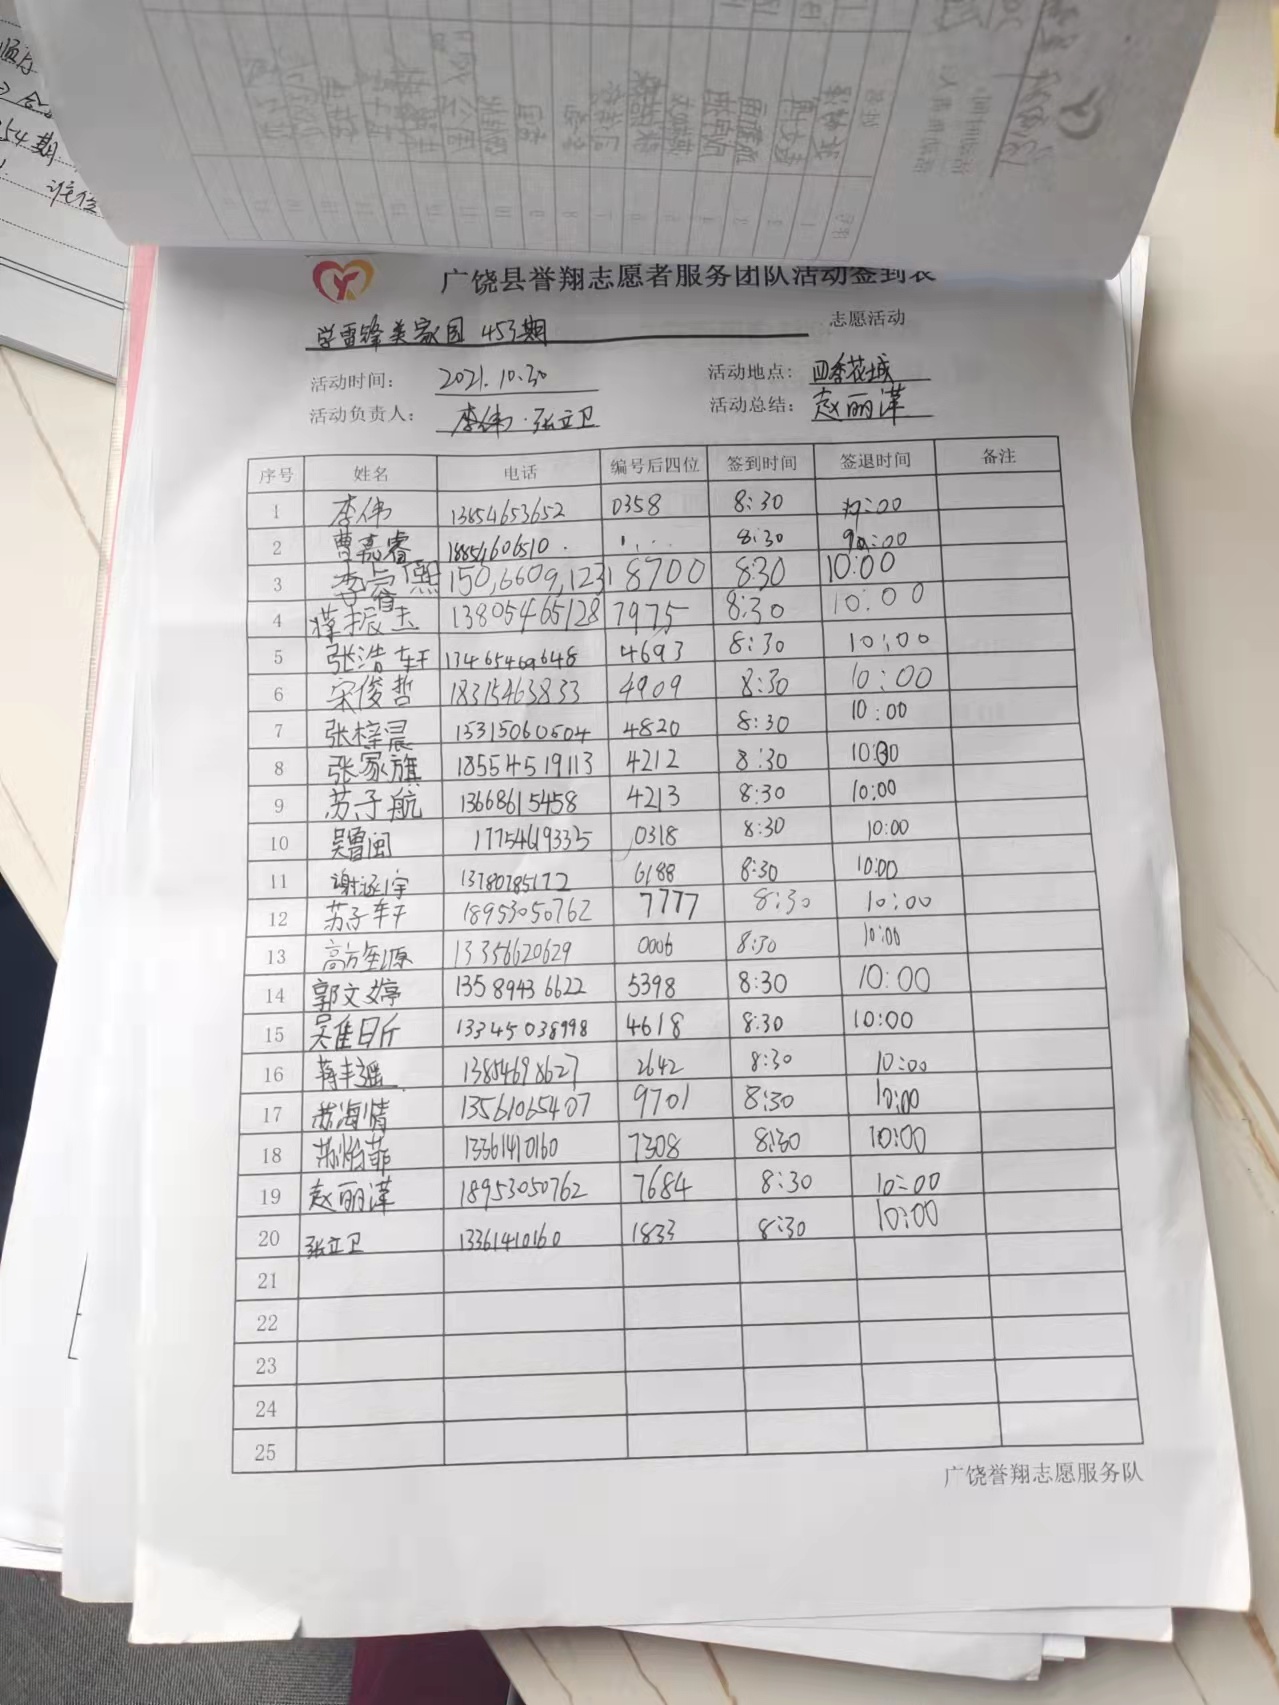 广饶县誉翔志愿者服务团队活动签到表
学雷锋美家园 453期 志愿活动
活动时间： 2021.10.30 活动地点： 四季花城
活动负责人： 李伟·张立卫 活动总结： 赵丽萍
序号 姓名 电话 编号后四位 签到时间 签退时间 备注
1 李伟 13854653652 0358 8:30 10:00
2 曹嘉睿 18854606510 8:30 10:00
3 李睿熙 150,6609,1231 8700 8:30 10:00
4 13805465128 7975 8:30 10:00
5 张浩轩 13465469648 4693 8:30 10:00
6 宋俊哲 18315463833 4909 8:30 10:00
7 张梓晨 15315060604 4820 8:30 10:00
8 张家旗 18554519113 4212 8:30 10:00
9 苏子航 13668615458 4213 8:30 10:00
10 吴曾闽 17754619335 0318 8:30 10:00
11 13780785172 6188 8:30 10:00
12 苏子轩 18953050762 7777 8:30 10:00
13 13356620629 0006 8:30 10:00
14 郭文婷 13589436622 5398 8:30 10:00
15 吴佳昕 13345038998 4618 8:30 10:00
16 蒋丰遥 13854698627 2642 8:30 10:00
17 苏海情 13561065407 9701 8:30 10:00
18 13361410160 7308 8:30 10:00
19 赵丽萍 18953050762 7684 8:30 10:00
20 张立卫 13361410160 1833 8:30 10:00
21
22
23
24
25
广饶誉翔志愿服务队